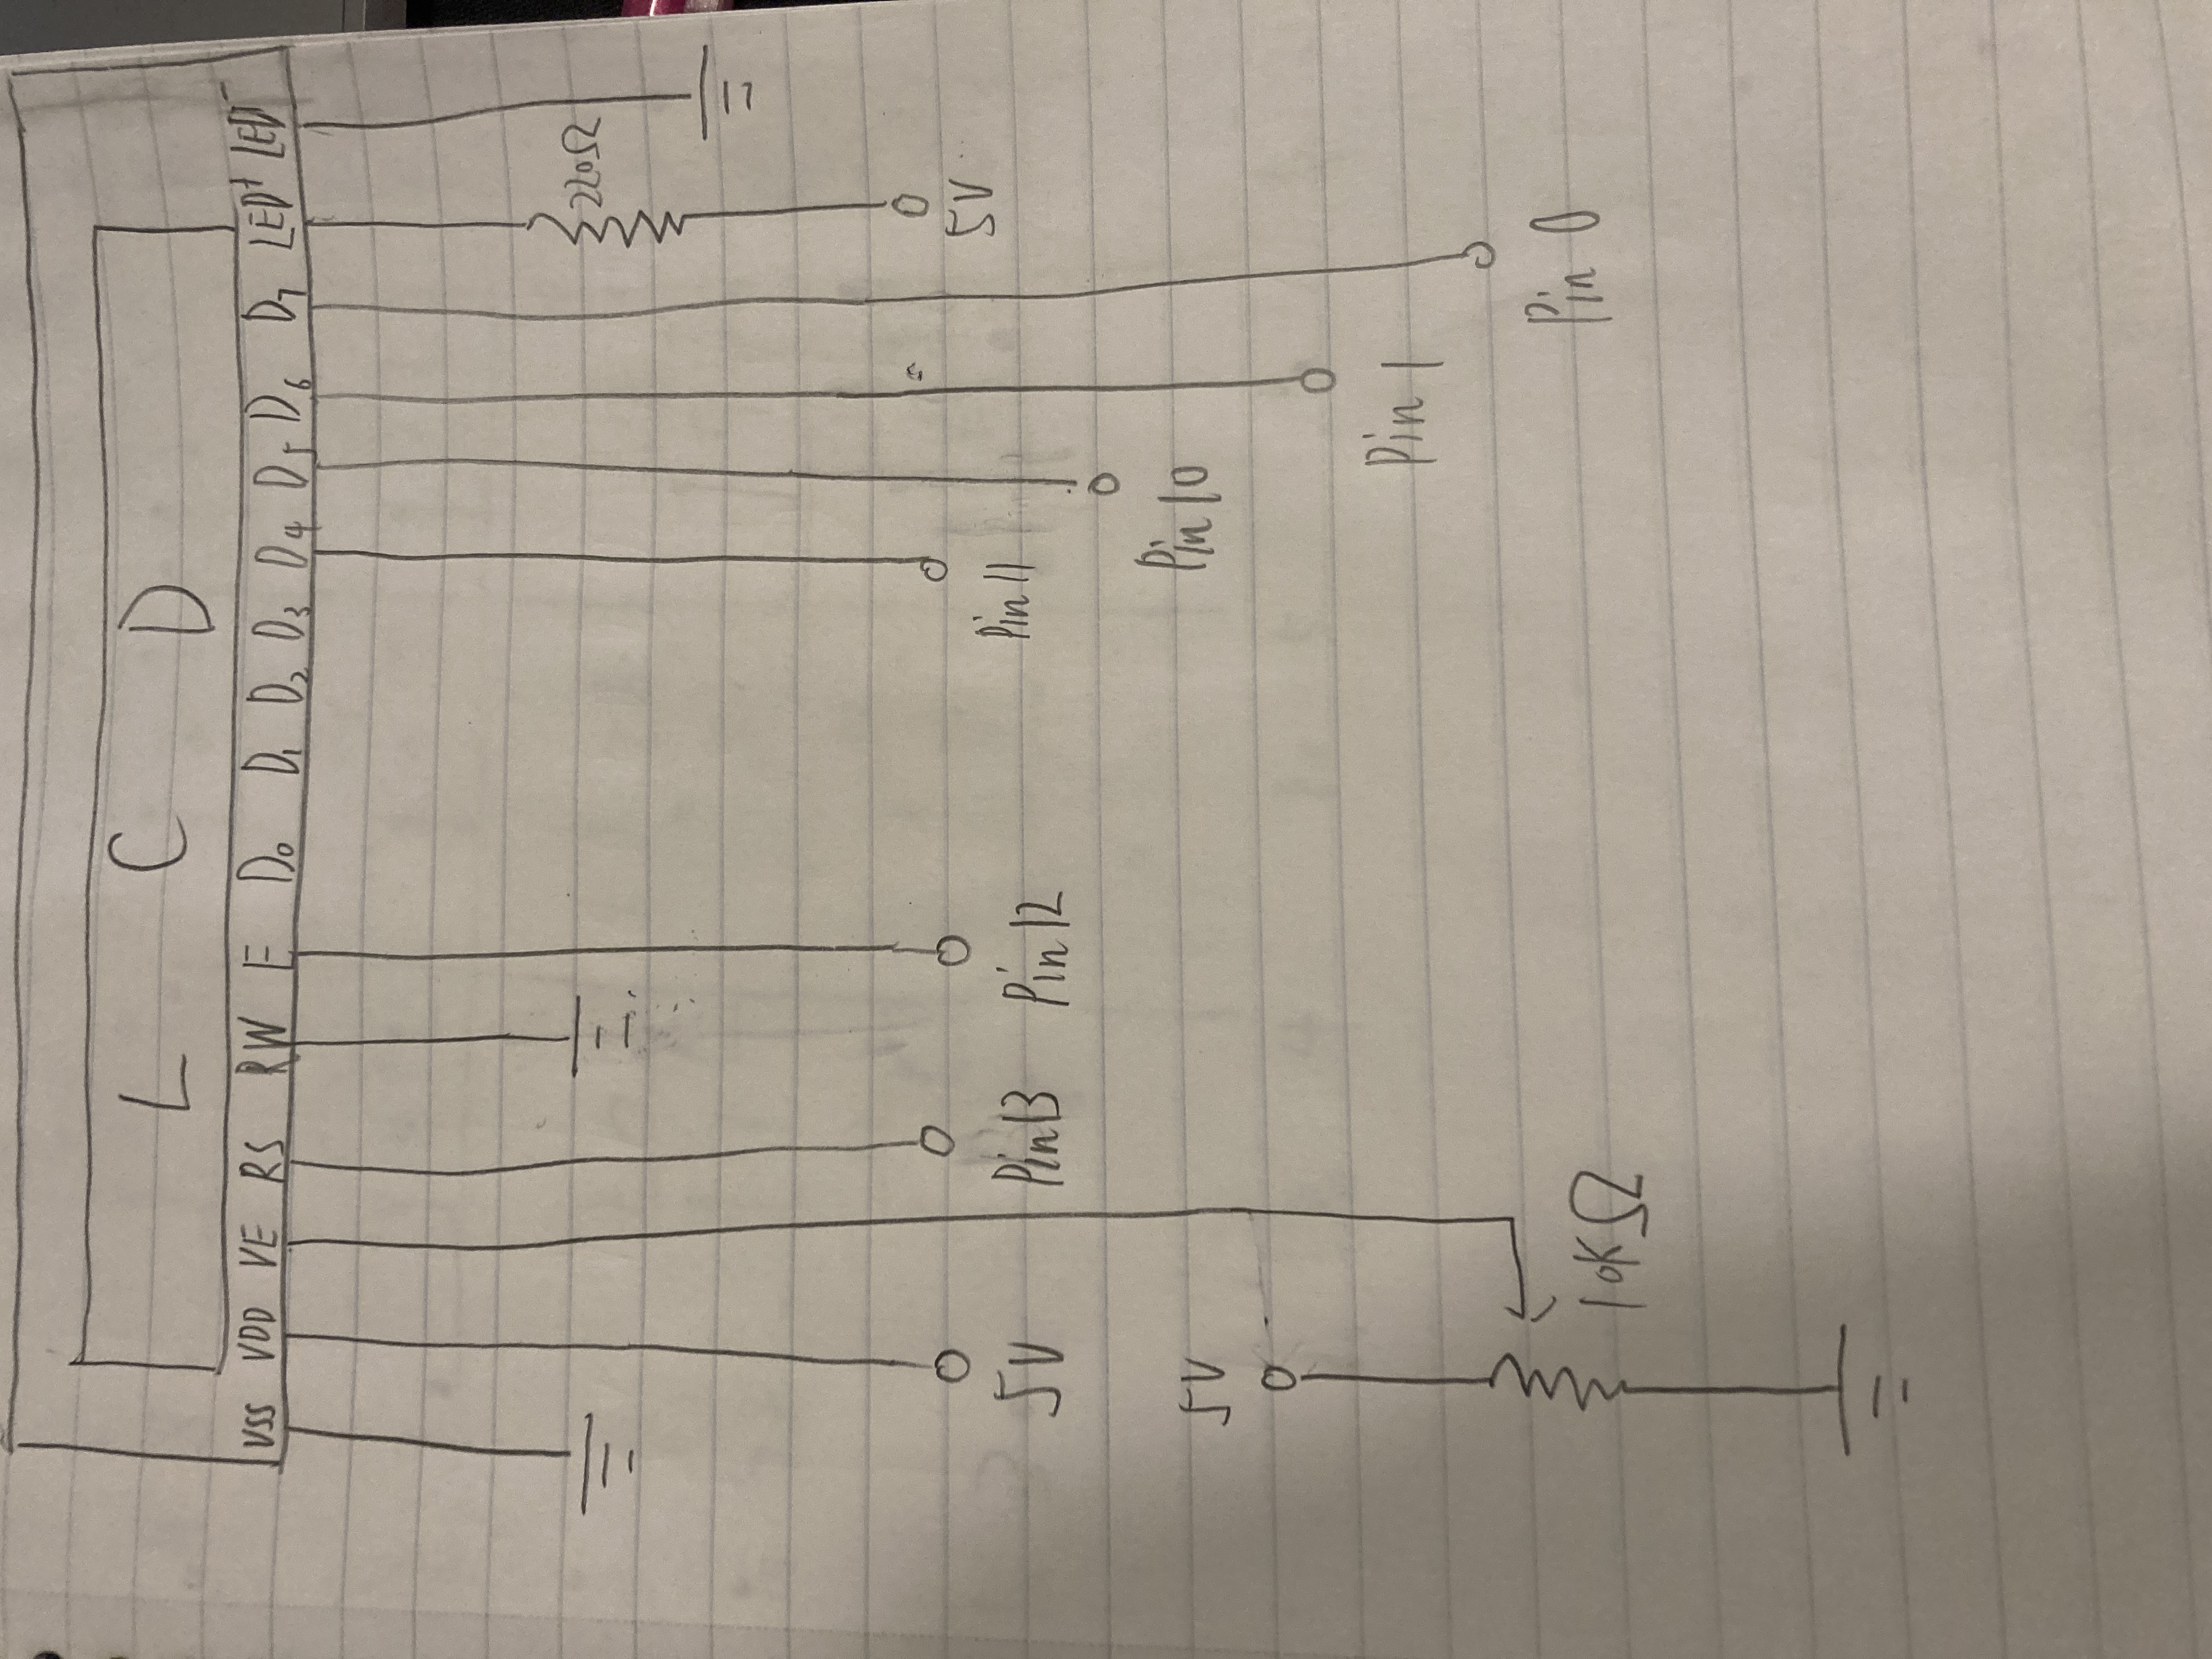 L C D
VSS VDD VE RS RW E D₀ D₁ D₂ D₃ D₄ D₅ D₆ D₇ LED⁺ LED⁻
220Ω
5V Pin13 Pin12 Pin 11 5V
Pin 10
5V
Pin 1
10KΩ
Pin 0